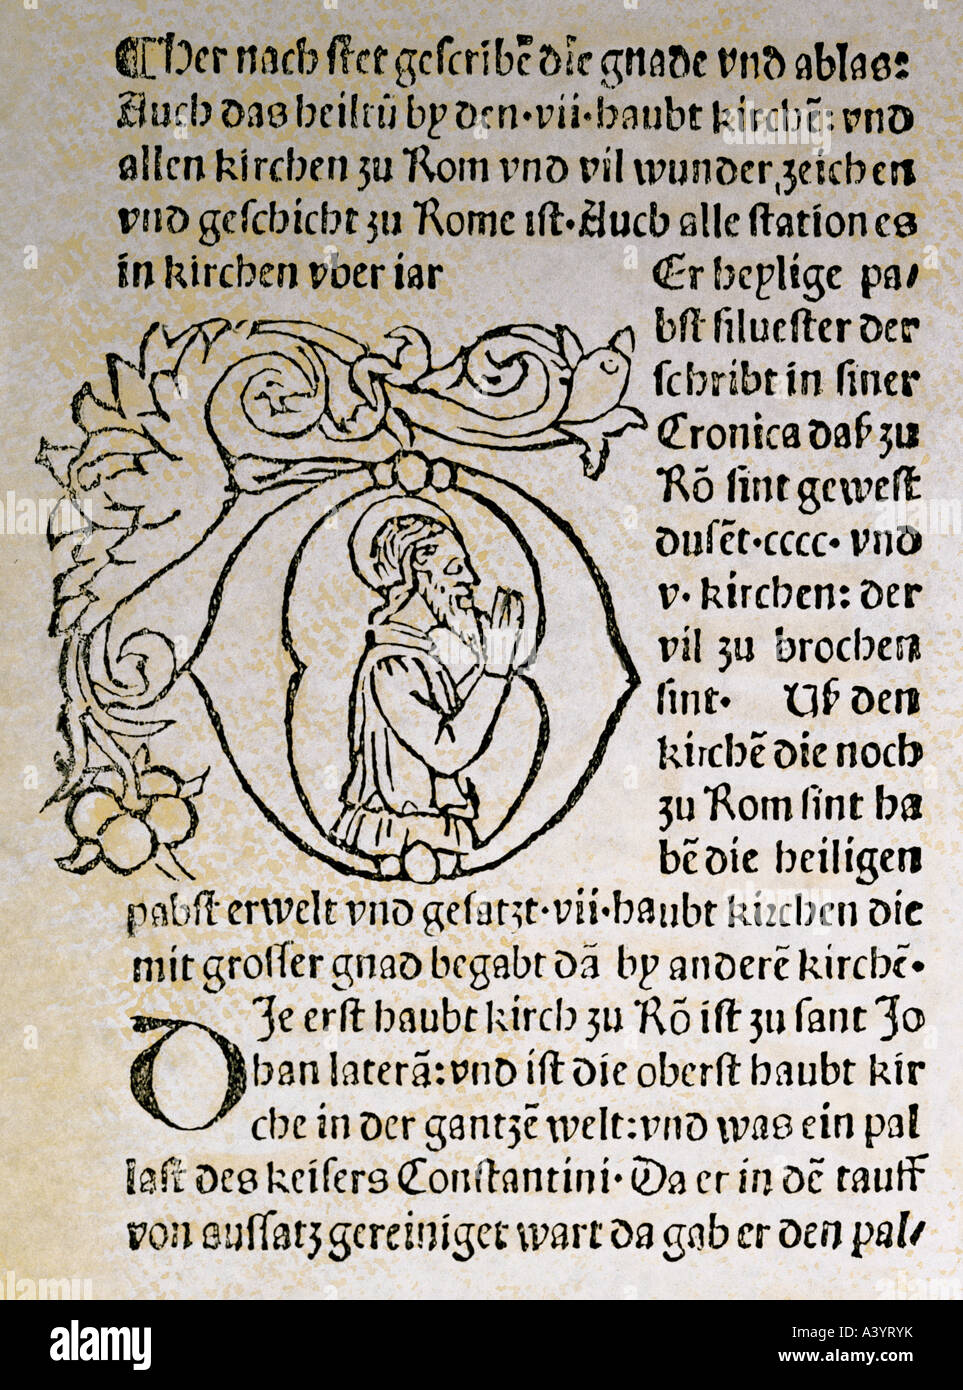 ¶Her nach stet gescribē die gnade vnd ablas:
Auch das heiltū by den·vii·haubt kirchē: vnd
allen kirchen zu Rom vnd vil wunder zeichen
vnd geschicht zu Rome ist·Auch alle stationes
in kirchen vber iar
Er heylige pa/
bst siluester der
schribt in siner
Cronica daß zu
Rō sint gewest
dusēt·cccc· vnd
v· kirchen: der
vil zu brochen
sint· Uß den
kirchē die noch
zu Rom sint ha
bē die heiligen
pabst erwelt vnd gesatzt·vii·haubt kirchen die
mit grosser gnad begabt dā by anderē kirchē·
DJe erst haubt kirch zu Rō ist zu sant Jo
han laterā: vnd ist die oberst haubt kir
che in der gantzē welt: vnd was ein pal
last des keisers Constantini· Da er in dē tauff
von aussatz gereiniget wart da gab er den pal/
alamy
Image ID: A3YRYK
www.alamy.com